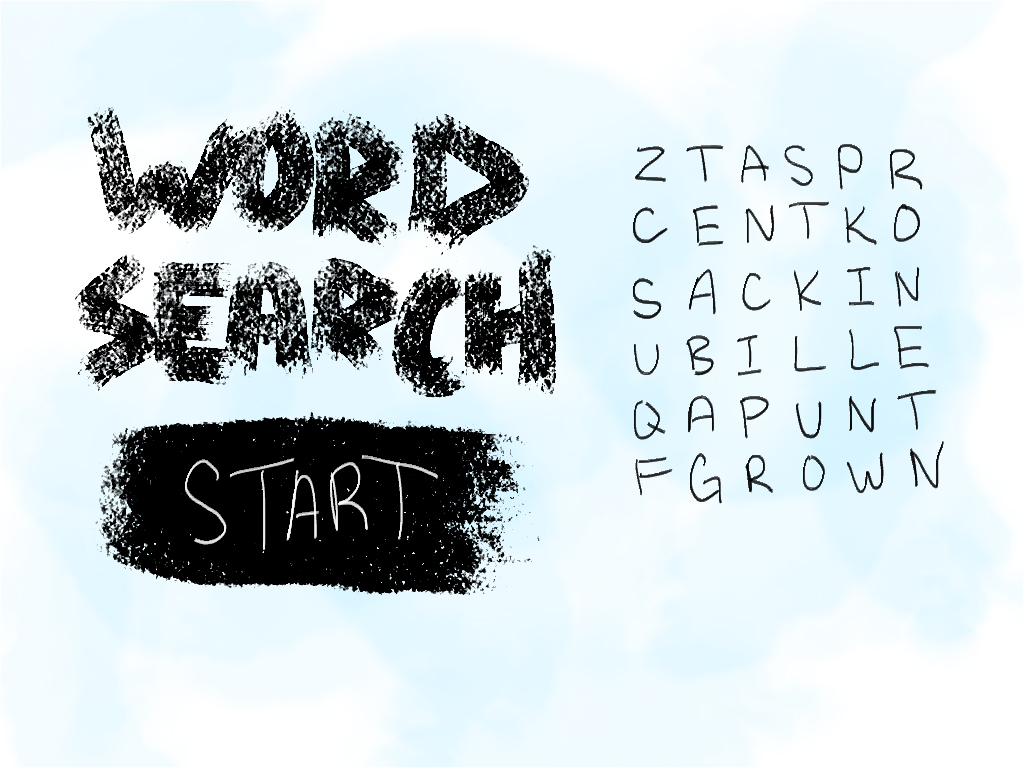 WORD
SEARCH
START
Z T A S P R
C E N T K O
S A C K I N
U B I L L E
Q A P U N T
F G R O W N